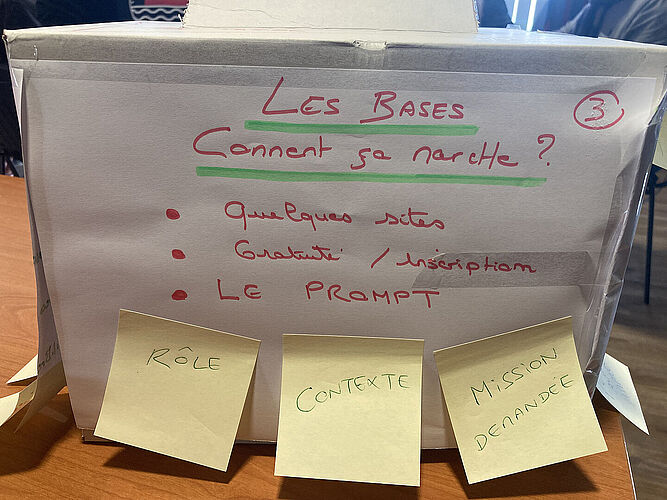 LES BASES
3
Comment ça marche ?
• Quelques sites
• Gratuité / inscription
• LE PROMPT
RÔLE
CONTEXTE
MISSION
DEMANDÉE